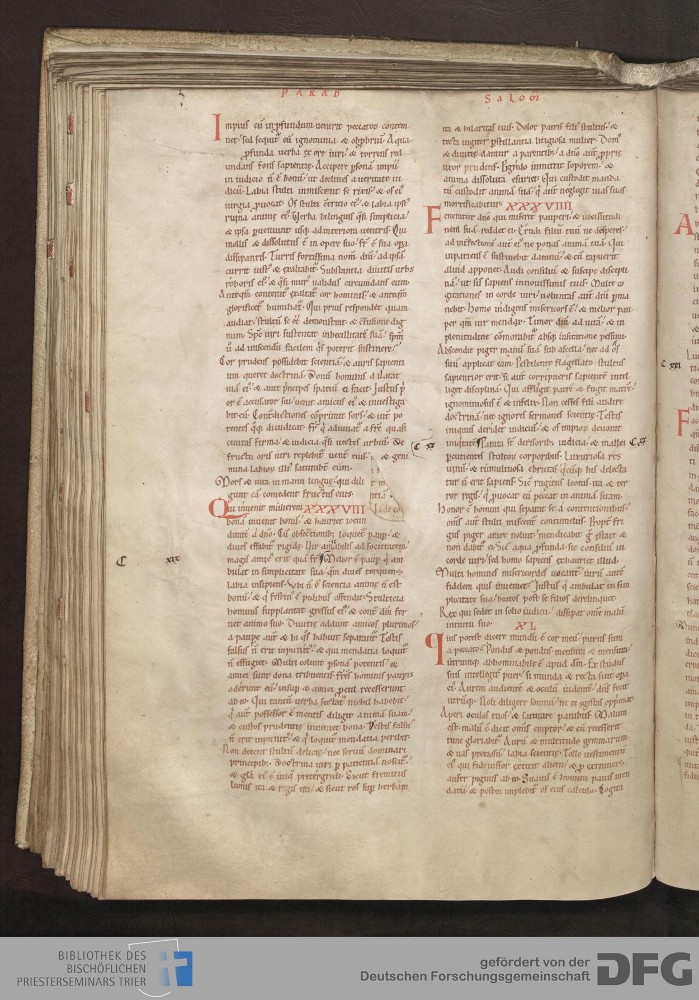 PARAB
SALOM
Impius cū in pfundum venerit peccatorū contem
net; sed sequit eū ignominia & obpbriū. Aqua
pfunda verba ex ore viri; & torrens red
undans fons sapientie. Accipere psonā impii
in iudicio n̄ ē bonū; ut declines a veritate iu
dicii. Labia stulti inmiscent se rixis; & os ei
iurgia puocat. Os stulti tritio ei; & labia ipsi
ruina anime ei. Verba bilinguis qsi simplicia;
& ipsa pveniunt usq ad interiora ventris. Qui
mollis & dissolutus ē in opere suo; fr ē sua opa
dissipantis. Turris fortissima nom dni; ad ipsā
currit iust & exaltabit. Substantia divitis urbs
roboris ei; & qsi mur validus circumdans eum.
Anteqm conterat exaltat cor hominis; & anteqm
glorificet humiliat. Qui prius respondet quam
audiat; stultū se eē demonstrat; & cfusione dig
num. Sps viri sustentat inbecillitatē suā; spm
v̄ ad irascendū facilem qs poterit sustinere.
Cor prudens possidebit scientiā; & auris sapienti
um querit doctrinā. Donū hominis dilatat
viā ei; & ante pncipes spaciū ei facit. Iustus p
or ē accusator sui; venit amicus ei & investiga
bit eū. Contdictiones cōprimit sors; & int po
tentes qq diiudicat. Fr q adiuvat a fre quasi
civitas firma; & iudicia qsi vectes urbiū. De
fructu oris viri replebit vent eius; & geni
mina labiorū illi saturabit eum.
Mors & vita in manu lingue; qui dili
gunt eā comedent fructus eius.
Qui invenit mulierem XXXVIII
bonā invenit bonū; & hauriet iocun
ditatē a dno. Cū obsecrationib loquet paup; &
dives effabit rigide. Vir amabilis ad societatem
magis amic erit quā fr. Melior ē paup q am
bulat in simplicitate sua; qm dives torquens
labia insipiens. Ubi n̄ ē scientia anime n̄ est
bonū; & q festin ē pedibus offendet. Stulticia
hominis supplantat gressus ei; & cont dm fer
vet animo suo. Divitie addunt amicos plurimos;
a paupe aut & hi qs habuit separant. Testis
falsus n̄ erit inpunit; & qui mendatia loquit
n̄ effugiet. Multi colunt psonā potentis; &
amici sunt dona tribuentis. Frēs hominis paupis
oderunt eū; insup & amici pcul recesserunt
ab eo. Qui tantū verba sectat nichil habebit;
q aut possessor ē mentis diligit animā suam;
& custos prudentie inveniet bona. Testis falsus
n̄ erit inpunit; & q loquit mendatia peribit.
Non decent stultū delicie; nec servū dominari
principib. Doctrina viri p patientiā noscit;
& gla ei ē iniqa pretergredi. Sicut fremitus
leonis ita & regis ira; & sicut ros sup herbam
ita & hilaritas eius. Dolor patris fili stultus; &
tecta iugiter pstillantia litigiosa mulier. Dom
& divitie dantur a parentib; a dno aut ppri
uxor prudens. Pigredo inmittit soporem; &
anima dissoluta esuriet. Qui custodit manda
tū custodit animā suā; q aut negligit vias suas
mortificabitur. XXXVIIII
Feneratur dno qui miseret pauperi; & vicissitudi
nem suā reddet ei. Erudi filiū tuū ne desperes;
ad infectionē aut ei ne ponas animā tuā. Qui
inpatiens ē sustinebit damnū; & cū rapuerit
aliud apponet. Audi consiliū & suscipe discipli
nā; ut sis sapiens in novissimis tuis. Multe co
gitationes in corde viri; voluntas aut dni pma
nebit. Homo indigens misericors ē; & melior pau
per qm vir mendax. Timor dni ad vitā; & in
plenitudine cōmorabit absq visitatione pessimi.
Abscondit piger manū suā sub ascella; nec ad os
suū applicat eam. Pestilente flagellato stultus
sapientior erit; si aut corripueris sapientē intel
liget disciplinā. Qui affligit patrē & fugit matrē;
ignominiosus ē & infelix. Non cesses fili audire
doctrinā; nec ignores sermones scientie. Testis
iniquus deridet iudiciū; & os impiorū devorat
iniqtatē. Parata st derisorib iudicia; & mallei
percutientes stultorū corporibus. Luxuriosa res
vinū; & tumultuosa ebrietas; qcūq his delecta
tur n̄ erit sapiens. Sic rugitus leonis ita & ter
ror regis; q puocat eū peccat in animā suam.
Honor ē homini qui separat se a contentionibus;
om̄s aut stulti miscent contumeliis. Ppt fri
gus piger arare noluit; mendicabit g estate &
non dabit ei. Sic aqua pfunda; sic consiliū in
corde viri; sed homo sapiens exhauriet illud.
Multi homines misericordes vocant; virū autē
fidelem quis inveniet. Iustus q ambulat in sim
plicitate sua; beatos post se filios derelinquet.
Rex qui sedet in solio iudicii; dissipat om̄e malū
intuitu suo. XL
Quis potest dicere mundū ē cor meū; purus sum
a peccato. Pondus & pondus; mensura & mensura;
utrumq abhominabile ē apud dm. Ex studiis
suis intelligit puer; si munda & recta sint opa
ei. Aurem audientē & oculū videntē; dns fecit
utrūq. Noli diligere somnū; ne te egestas opprimat.
Aperi oculos tuos & saturare panibus. Malum
est malū ē dicit omis emptor; & cū recesserit
tunc gloriabit. Aurū & multitudo gemmarum;
& vas pretiosū labia scientie. Tolle vestimentū
ei qui fideiussor extitit alieni; & p extraneis
aufer pignus ab eo. Suavis ē homini panis men
dacii; & postea implebit os eius calculo. Cogita
C XIX
C XX
C XXI
BIBLIOTHEK DES
BISCHÖFLICHEN
PRIESTERSEMINARS TRIER
gefördert von der
Deutschen Forschungsgemeinschaft
DFG